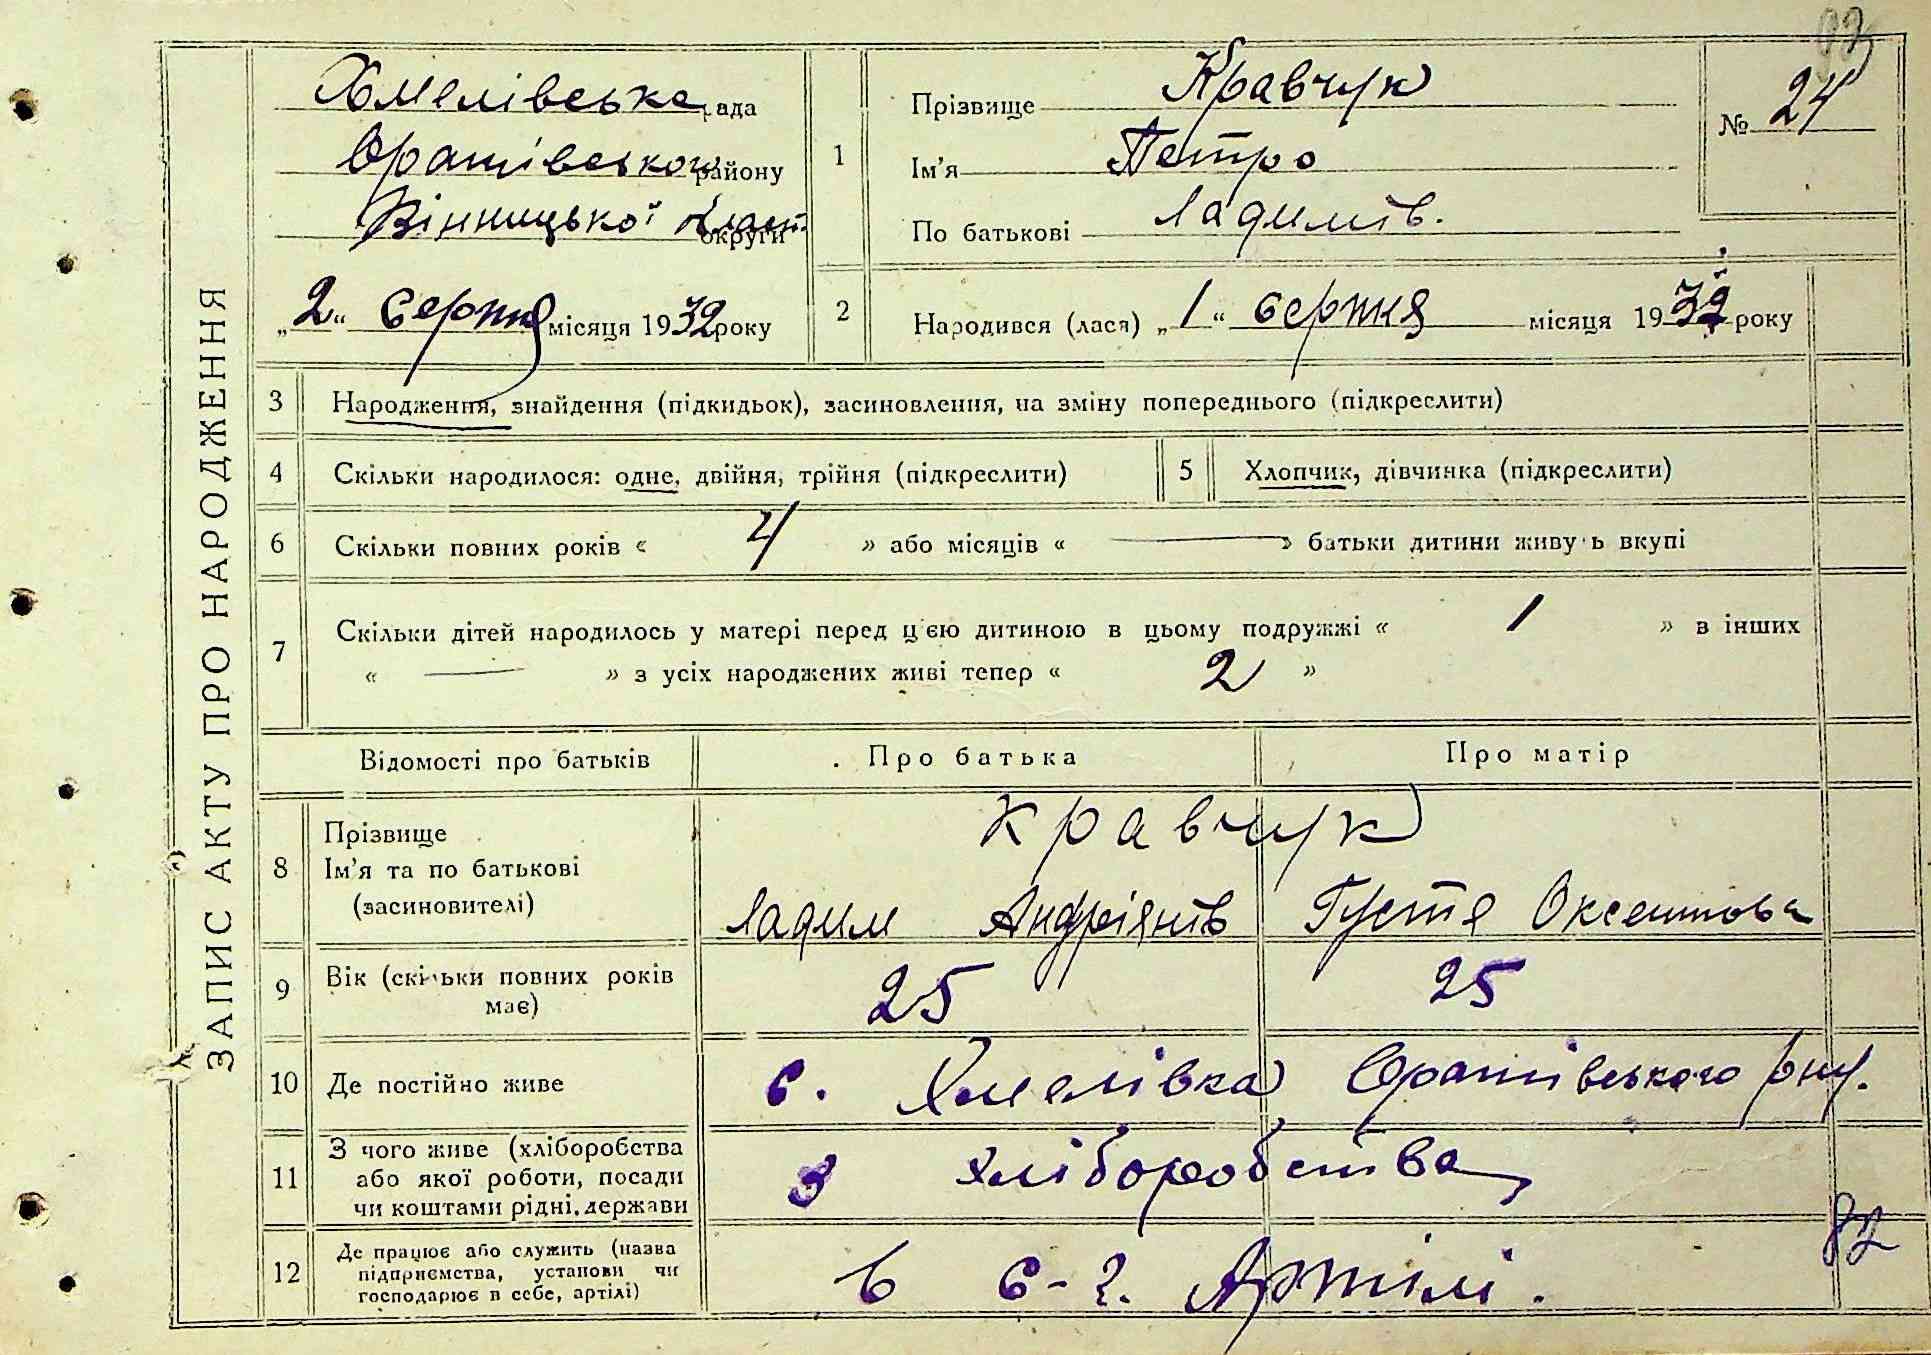 ЗАПИС АКТУ ПРО НАРОДЖЕННЯ
Хмелівська рада
Оратівського району
Вінницької област. округи
„2“ Серпня місяця 1932 року
1
Прізвище Кравчук
Ім'я Петро
По батькові Ладимів.
№ 24
2
Народився (лася) „1“ серпня місяця 1932 року
3 Народження, знайдення (підкидьок), засиновлення, на зміну попереднього (підкреслити)
4 Скільки народилося: одне, двійня, трійня (підкреслити)
5 Хлопчик, дівчинка (підкреслити)
6 Скільки повних років « 4 » або місяців « — » батьки дитини живуь вкупі
7 Скільки дітей народилось у матері перед цєю дитиною в цьому подружжі « 1 » в інших
« — » з усіх народжених живі тепер « 2 »
Відомості про батьків Про батька Про матір
8 Прізвище
Ім'я та по батькові
(засиновителі)
Кравчук
Ладим Андріянів Густя Оксентова
9 Вік (скільки повних років має) 25 25
10 Де постійно живе с. Хмелівка Оратівського рну.
11 З чого живе (хліборобства
або якої роботи, посади
чи коштами рідні, держави
З хліборобства
12 Де працює або служить (назва
підприємства, установи чи
господарює в себе, артілі)
в с-г. Артілі.
82